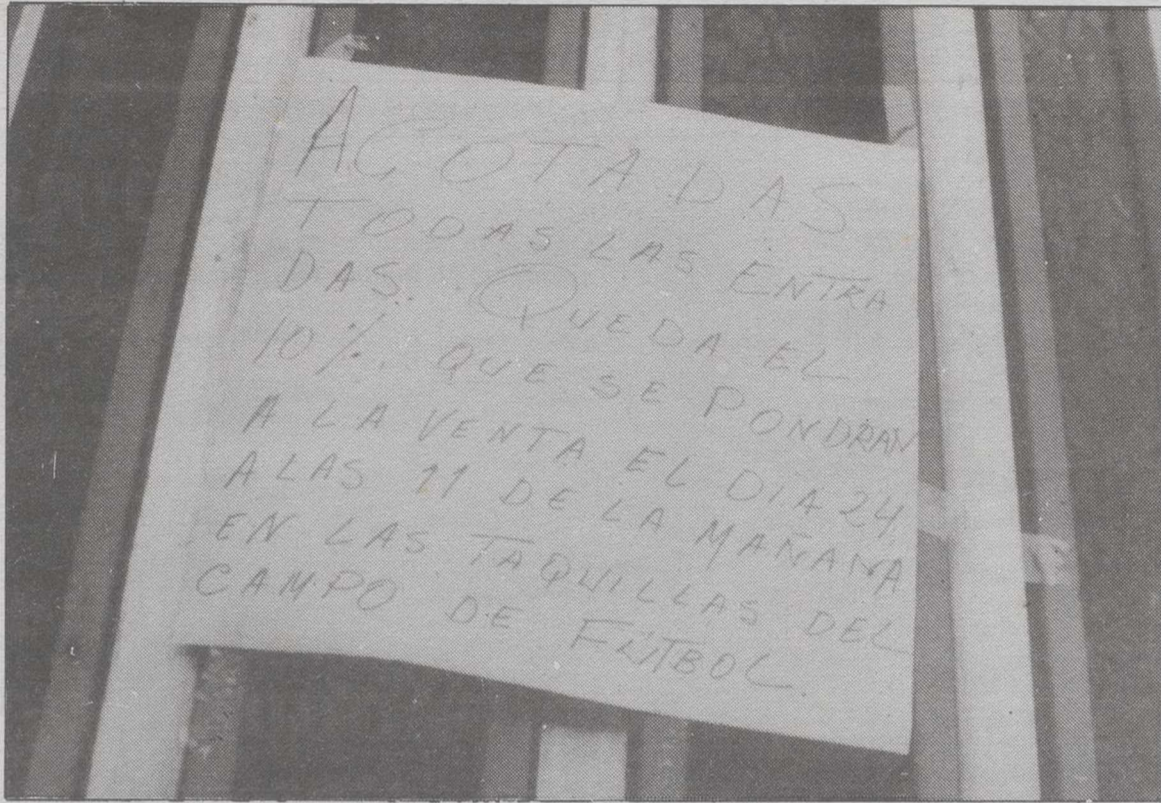 AGOTADAS
TODAS LAS ENTRA
DAS. QUEDA EL
10%. QUE SE PONDRAN
A LA VENTA EL DIA 24
ALAS 11 DE LA MAÑANA
EN LAS TAQUILLAS DEL
CAMPO DE FÚTBOL.